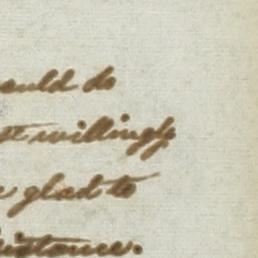 ould do
st willingly
glad to
istance.